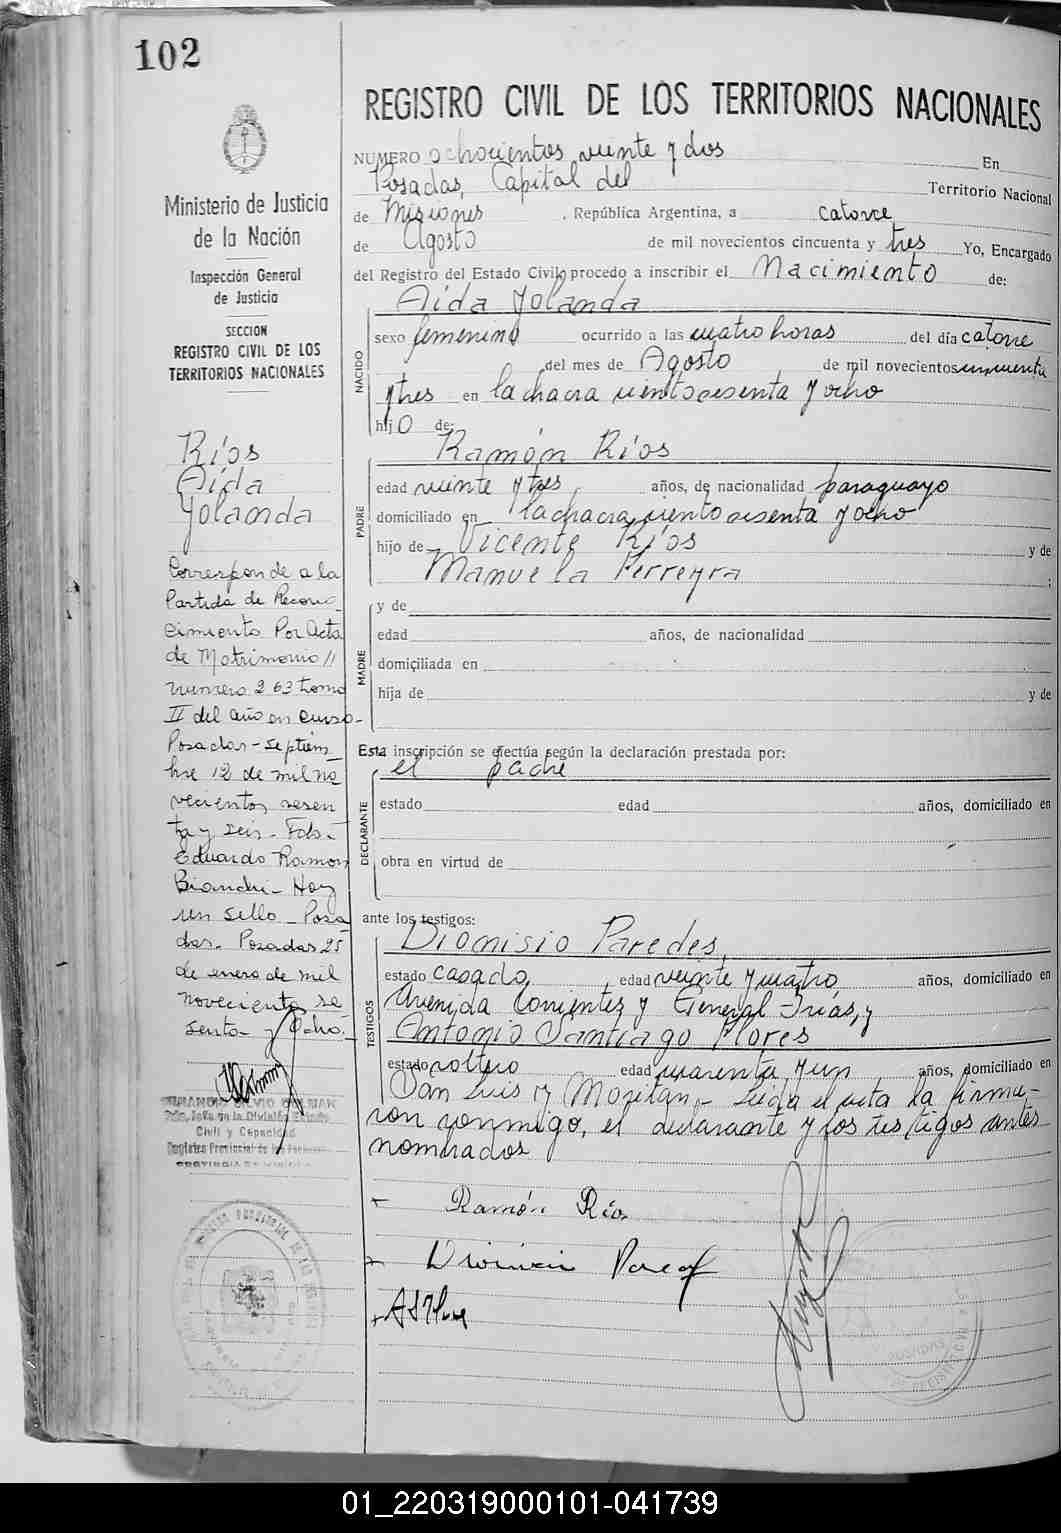 102
Ministerio de Justicia
de la Nación
Inspección General
de Justicia
SECCION
REGISTRO CIVIL DE LOS
TERRITORIOS NACIONALES
Ríos
Aída
Yolanda
Corresponde a la
Partida de Recono-
cimiento Por Acta
de Matrimonio //
numero 263 tomo
II del año en curso-
Posadas - Septiem
bre 12 de mil no
vecientos sesen
ta y seis - Fdo.-
Eduardo Ramon
Bianchi - Hay
un sello - Posa
das. Posadas 25
de enero de mil
novecientos se
senta y Ocho.
REGISTRO CIVIL DE LOS TERRITORIOS NACIONALES
NUMERO ochocientos veinte y dos En
Posadas, Capital del Territorio Nacional
de Misiones , República Argentina, a catorce
de Agosto de mil novecientos cincuenta y tres Yo, Encargado
del Registro del Estado Civil, procedo a inscribir el Nacimiento de:
NACIDO
Aída Yolanda
sexo femenino ocurrido a las cuatro horas del día catorce
del mes de Agosto de mil novecientos cincuenta
y tres en la chacra ciento sesenta y ocho
hijo de:
PADRE
Ramón Ríos
edad veinte y tres años, de nacionalidad paraguayo
domiciliado en la chacra ciento sesenta y ocho
hijo de Vicente Ríos y de
Manuela Ferreyra ;
MADRE
y de
edad años, de nacionalidad
domiciliada en
hija de y de
Esta inscripción se efectúa según la declaración prestada por:
DECLARANTE
el padre
estado edad años, domiciliado en
obra en virtud de
ante los testigos:
TESTIGOS
Dionisio Paredes,
estado casado, edad veinte y cuatro años, domiciliado en
Avenida Corrientes y General Frías, y
Antonio Santiago Flores
estado soltero edad cuarenta y un años, domiciliado en
San Luis y - Leida el acta la firma-
ron conmigo, el declarante y los testigos antes
nombrados
Ramón Ríos
01_220319000101-041739